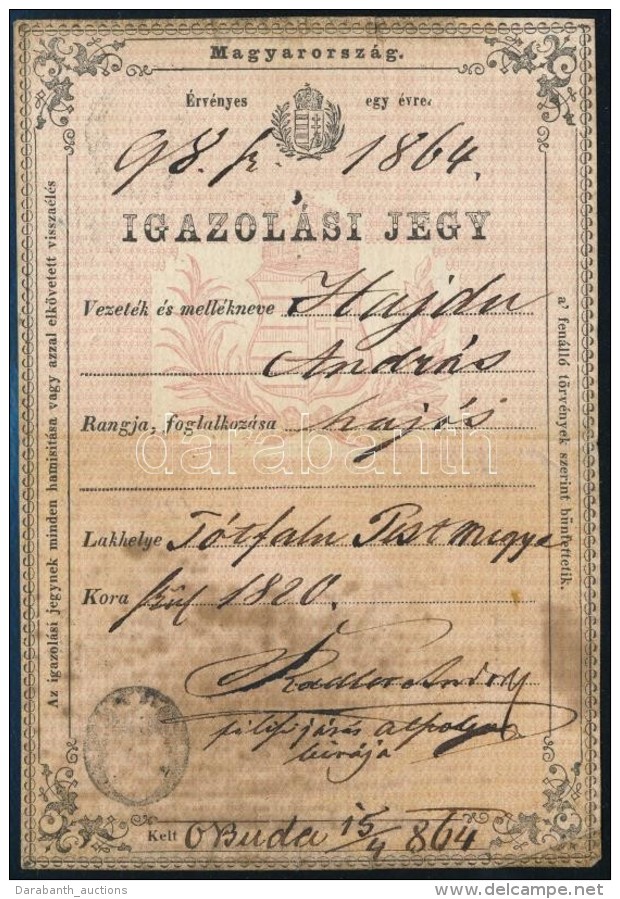 Magyarország.
Érvényes egy évre.
98. sz. 1864.
IGAZOLÁSI JEGY
Vezeték és mellékneve Hajdu
András
Rangja, foglalkozása hajós
darabanth
Lakhelye Tótfalu Pest megye
Kora szül 1820.
pilisi járás alszolga
birája
Kelt OBuda 15/4 864
Az igazolási jegynek minden hamisítása vagy azzal elkövetett visszaélés
a' fenálló törvények szerint büntettetik.
Darabanth_auctions
delcampe.net